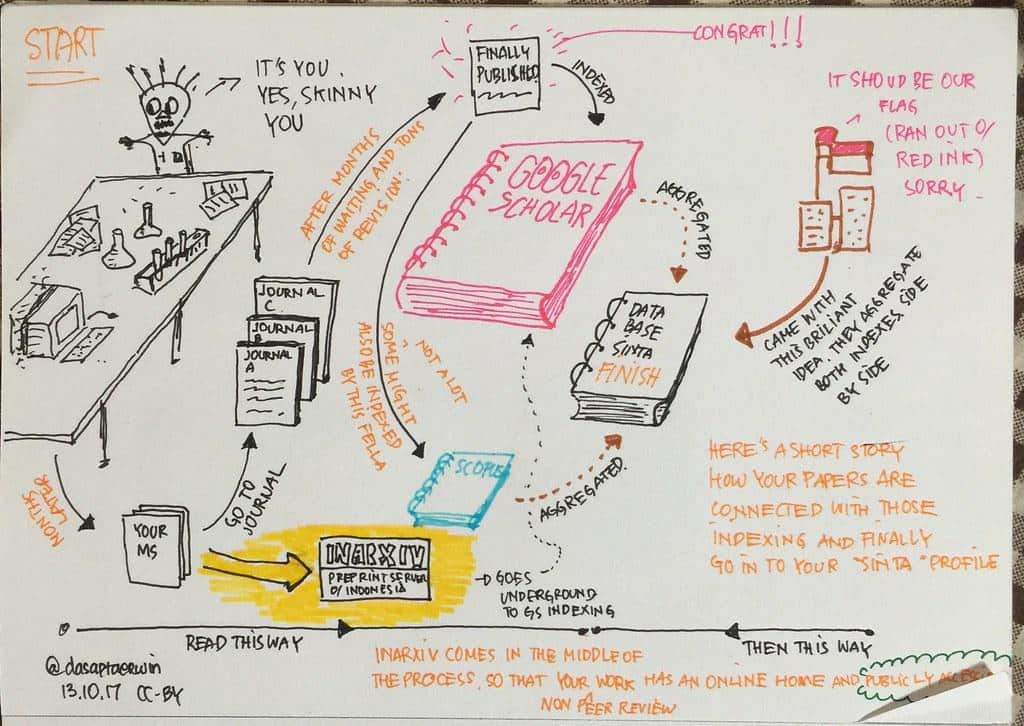 START
IT'S YOU.
YES, SKINNY
YOU
MONTHS
LATER
YOUR
MS
GO TO
JOURNAL
JOURNAL
C
JOURNAL
B
JOURNAL
A
AFTER MONTHS
OF WAITING AND TONS
OF REVISION.
FINALLY
PUBLISHED
CONGRAT!!!
INDEXED
GOOGLE
SCHOLAR
SOME MIGHT
ALSO BE INDEXED
BY THIS FELLA
NOT A LOT
SCOPUS
AGGREGATED
AGGREGATED.
DATA
BASE
SINTA
FINISH
IT SHOUD BE OUR
FLAG
(RAN OUT O/
RED INK)
SORRY -
CAME WITH
THIS BRILIANT
IDEA. THEY AGGREGATE
BOTH INDEXES SIDE
BY SIDE
INARXIV
PREPRINT SERVER
O/ INDONESIA
GOES
UNDERGROUND
TO GS INDEXING
HERE'S A SHORT STORY
HOW YOUR PAPERS ARE
CONNECTED WITH THOSE
INDEXING AND FINALLY
GO IN TO YOUR "SINTA" PROFILE
READ THIS WAY
THEN THIS WAY
@dasaptaerwin
13.10.17 CC-BY
INARXIV COMES IN THE MIDDLE OF
THE PROCESS, SO THAT YOUR WORK HAS AN ONLINE HOME AND PUBLICLY
NON PEER REVIEW